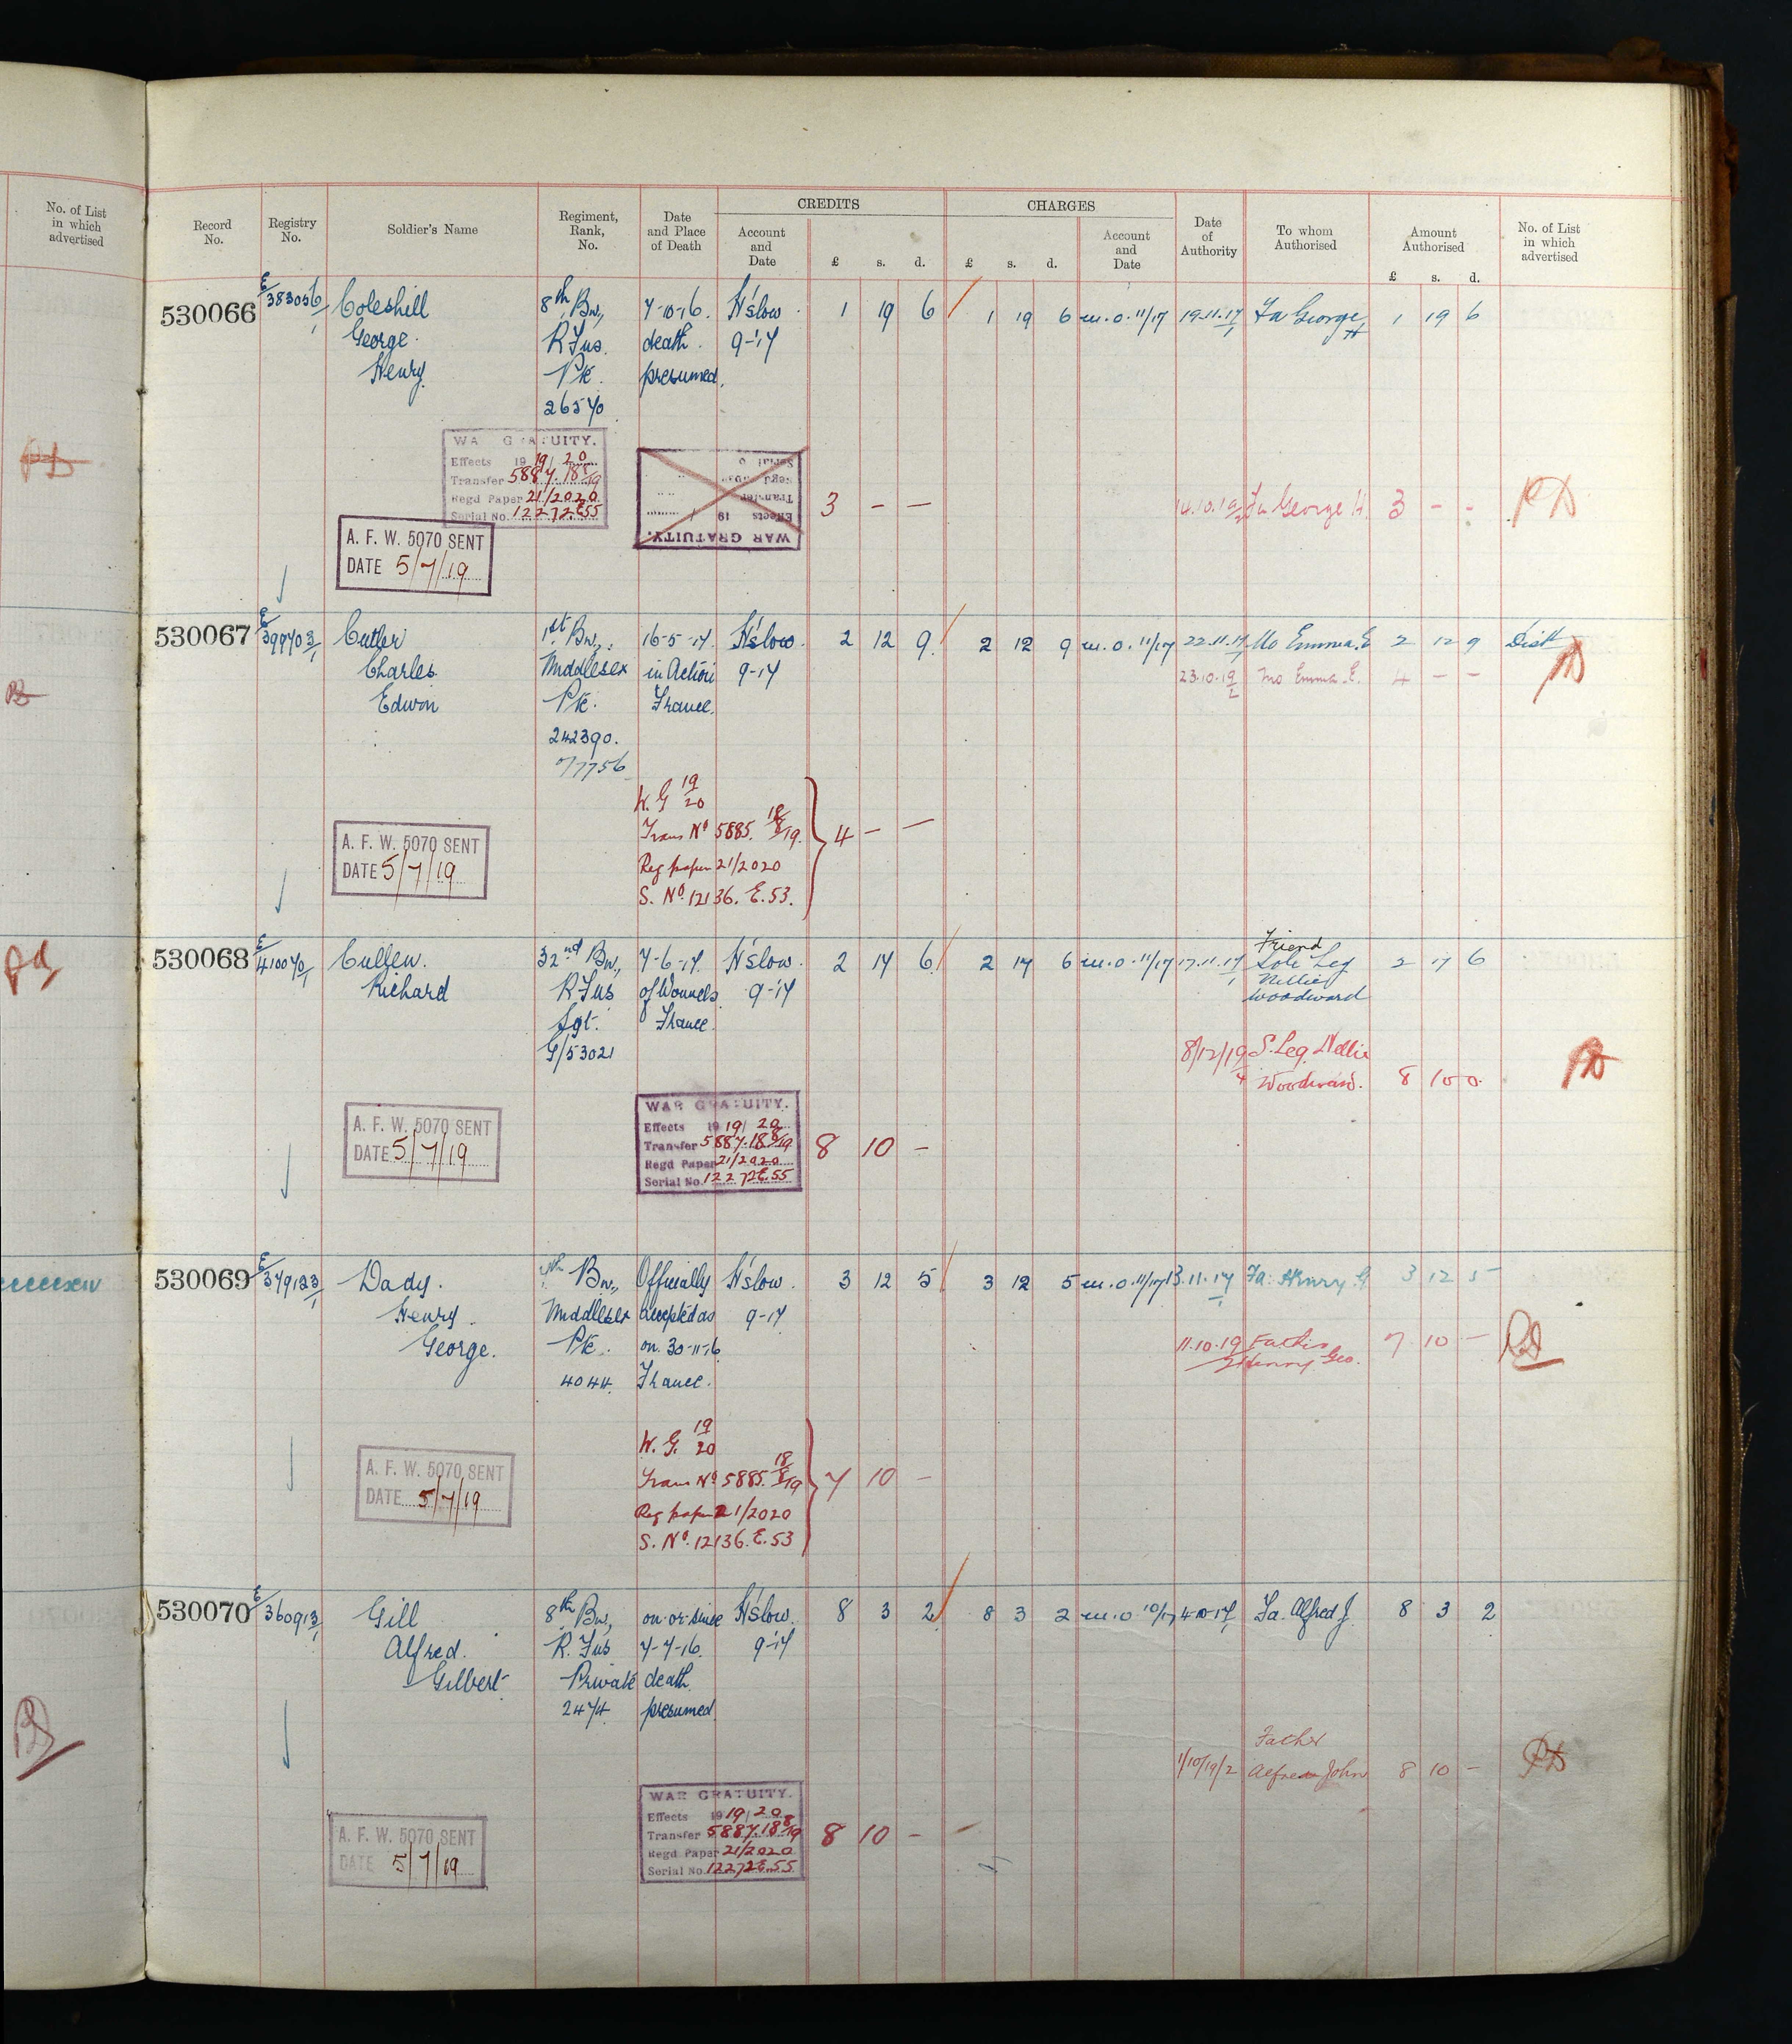 No. of List
in which
advertised
CREDITS
CHARGES
Record
No.
Registry
No.
Soldier's Name
Regiment,
Rank,
No.
Date
and Place
of Death
Account
and
Date
£ s. d.
£ s. d.
Account
and
Date
Date
of
Authority
To whom
Authorised
Amount
Authorised
£ s. d.
No. of List
in which
advertised
530066 E/383056/1 Coleshill 8th Bn, 7-10-16. H'slow. 1 19 6 1 19 6 m.o. 11/17 19.11.17/1 Fa George H 1 19 6
George R Fus. death 9-17
Henry Pte. presumed.
26570
WAR GRATUITY.
Effects 1919/20
Transfer 5887.18 8/19
Regd Paper 21/2020
Serial No. 12272 E55
WAR GRATUITY.
Effects 19 /
Transfer
Regd Paper
Serial
3 – –
14.10.19/2 Fa George H. 3 - -
A. F. W. 5070 SENT
DATE 5/7/19
530067 E/399703/1 Cutler 1st Bn, 16-5-17. H'slow. 2 12 9 2 12 9 m.o. 11/17 22.11.17/1 Mo Emma.E 2 12 9 Distt
Charles Middlesex in Action 9-17 23.10.19/2 Mo Emma.E. 4 - -
Edwin Pte. France.
242390.
77756
W.G 19/20
Trans No 5885. 18/8/19.
Reg paper 21/2020
S. No. 12136. E.53.
4 – –
A. F. W. 5070 SENT
DATE 5/7/19
530068 E/410070/1 Cullen. 32nd Bn, 7-6-17. H'slow. 2 17 6 2 17 6 m.o. 11/17 17.11.17/1 Friend
Sole Leg
Nellie
Woodward
2 17 6
Richard R Fus of Wounds 9-17
Sgt. France.
G/53021
8/12/19/4 S. Leg. Nellie
Woodward. 8 10 0.
A. F. W. 5070 SENT
DATE 5/7/19
WAR GRATUITY.
Effects 1919/20
Transfer 5887.18 8/19
Regd Paper 21/2020
Serial No. 12272 E.55
8 10 –
530069 E/379123/1 Dady. Bn, Officially H'slow. 3 12 5 3 12 5 m.o 11/17 13.11.17/1 Fa: Henry G 3 12 5
Henry Middlesex accepted as 9-17
George. Pte. on 30-11-16
4044. France.
11.10.19/2 Father
Henry Geo. 7 10 –
W. G. 19/20
Trans No 5885. 18/8/19
Reg paper 21/2020
S. No. 12136. E.53
7 10 –
A. F. W. 5070 SENT
DATE 5/7/19
530070 E/360913/1 Gill 8th Bn, on or since H'slow. 8 3 2 8 3 2 m.o 10/17 4-10-17/1 Fa. Alfred J 8 3 2
Alfred. R. Fus 7-7-16. 9-17
Gilbert Private death
2474 presumed
1/10/19/2 Father
Alfred John 8 10 –
WAR GRATUITY.
Effects 1919/20
Transfer 5887.18 8/19
Regd Paper 21/2020
Serial No. 12272 E.55
8 10 –
A. F. W. 5070 SENT
DATE 5/7/19